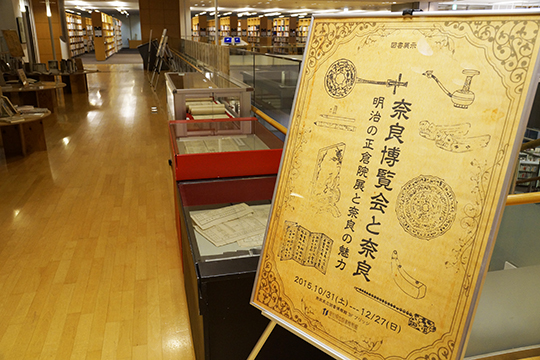 図書展示
奈良博覧会と奈良
明治の正倉院展と奈良の魅力
2015.10/31(土)―12/27(日)